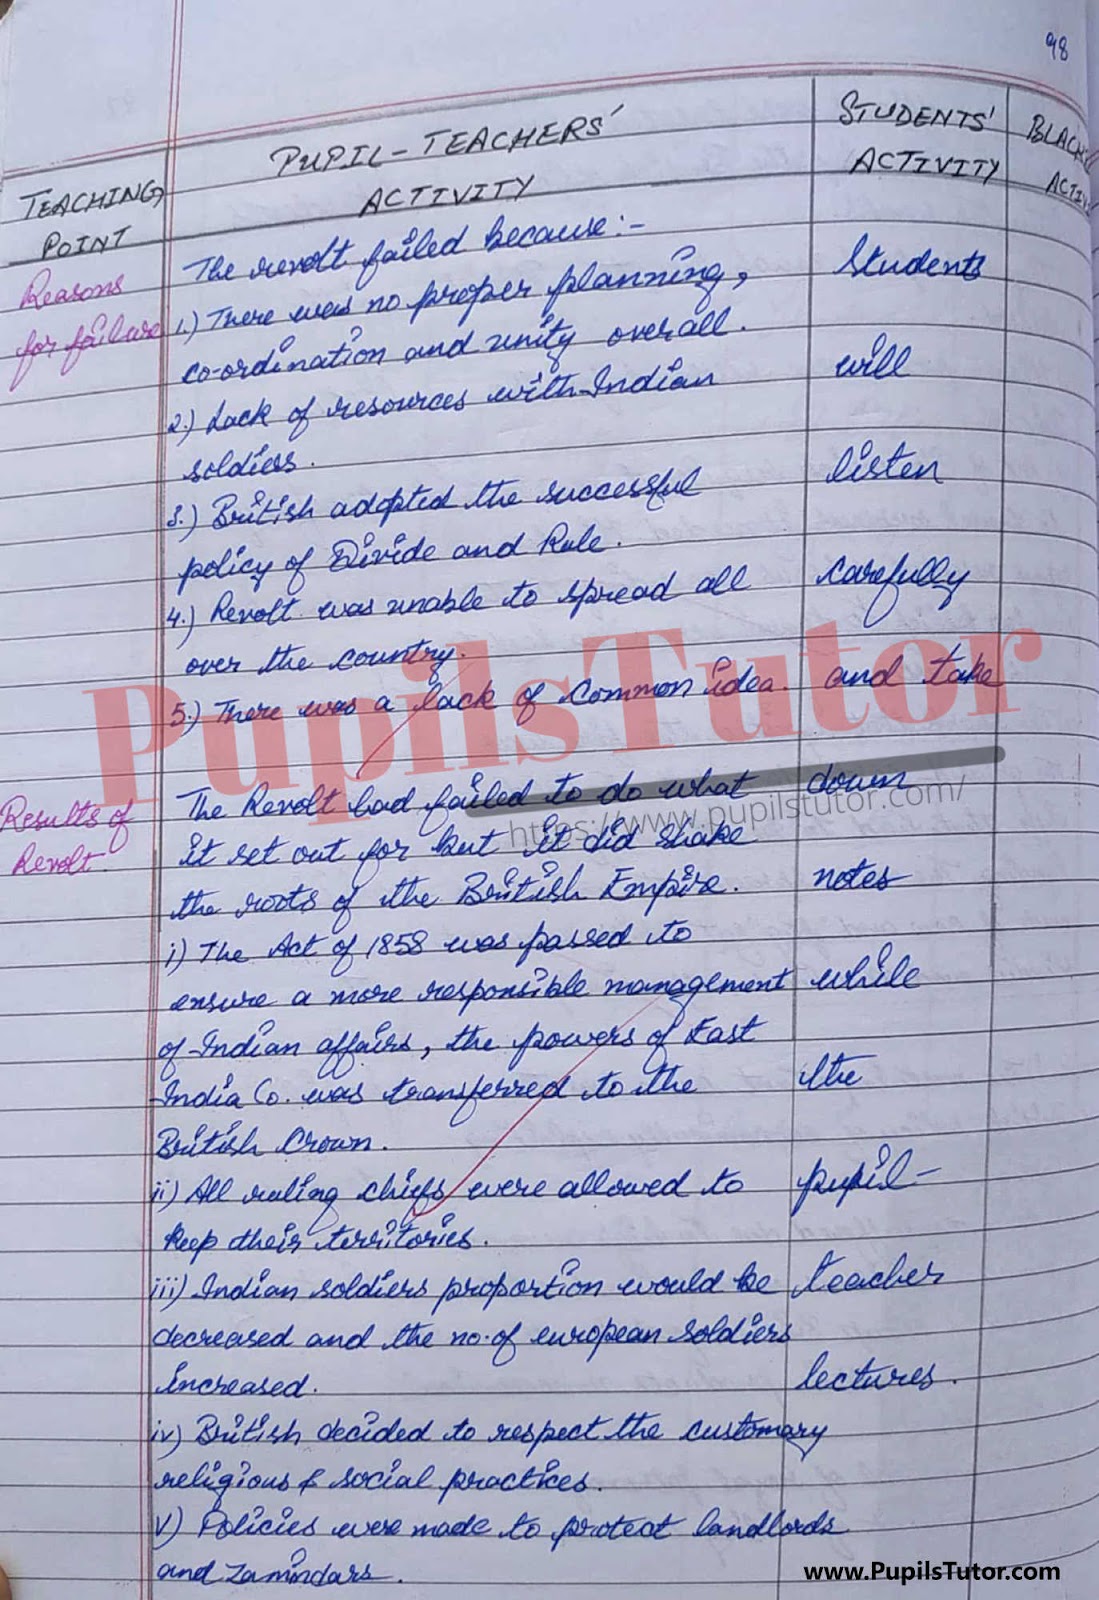 98
TEACHING
POINT
PUPIL-TEACHERS'
ACTIVITY
STUDENTS'
ACTIVITY
Reasons
for failure
The revolt failed because:-
1.) There was no proper planning,
co-ordination and unity overall.
2.) Lack of resources with Indian
soldiers.
3.) British adopted the successful
policy of Divide and Rule.
4.) Revolt was unable to spread all
over the country.
5.) There was a lack of common idea.
Results of
Revolt.
The Revolt had failed to do what
it set out for but it did shake
the roots of the British Empire.
i) The Act of 1858 was passed to
ensure a more responsible management
of Indian affairs, the powers of East
India Co. was transferred to the
British Crown.
ii) All ruling chiefs were allowed to
keep their territories.
iii) Indian soldiers proportion would be
decreased and the no. of european soldiers
increased.
iv) British decided to respect the customary
religious & social practices.
v) Policies were made to protect landlords
and Zamindars.
Students
will
listen
carefully
and take
down
notes
while
the
pupil-
teacher
lectures.
PupilsTutor
https://www.pupilstutor.com/
www.PupilsTutor.com